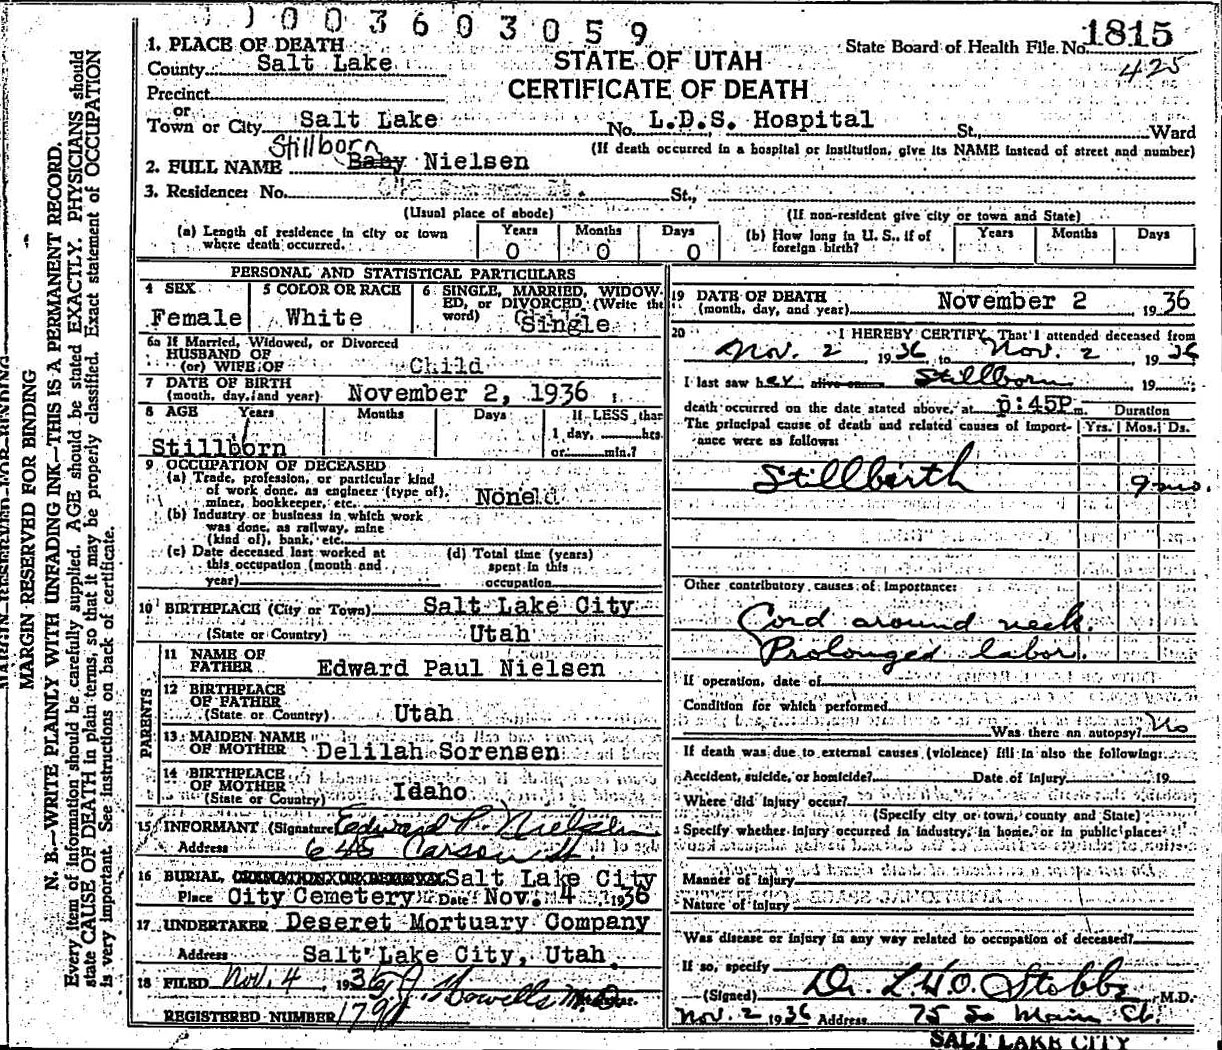 1003603059
1. PLACE OF DEATH
County Salt Lake
STATE OF UTAH
CERTIFICATE OF DEATH
State Board of Health File No. 1815
425
Precinct
or
Town or City Salt Lake No. L.D.S. Hospital St., Ward
(If death occurred in a hospital or institution, give its NAME instead of street and number)
Stillborn
2. FULL NAME Baby Nielsen
3. Residence: No. St.,
(Usual place of abode) (If non-resident give city or town and State)
(a) Length of residence in city or town where death occurred. Years 0 Months 0 Days 0
(b) How long in U. S., if of foreign birth? Years Months Days
PERSONAL AND STATISTICAL PARTICULARS
4 SEX Female
5 COLOR OR RACE White
6 SINGLE, MARRIED, WIDOWED, or DIVORCED (Write the word) Single
6a If Married, Widowed, or Divorced
HUSBAND OF
(or) WIFE OF Child
7 DATE OF BIRTH
(month, day, and year) November 2, 1936
8 AGE Years Months Days If LESS than
1 day, hrs.
or min.?
Stillborn
9 OCCUPATION OF DECEASED
(a) Trade, profession, or particular kind
of work done, as engineer (type of),
miner, bookkeeper, etc. None
(b) Industry or business in which work
was done, as railway, mine
(kind of), bank, etc.
(c) Date deceased last worked at
this occupation (month and
year)
(d) Total time (years)
spent in this
occupation
10 BIRTHPLACE (City or Town) Salt Lake City
(State or Country) Utah
PARENTS
11 NAME OF
FATHER Edward Paul Nielsen
12 BIRTHPLACE
OF FATHER
(State or Country) Utah
13 MAIDEN NAME
OF MOTHER Delilah Sorensen
14 BIRTHPLACE
OF MOTHER
(State or Country) Idaho
15 INFORMANT (Signature) Edward P. Nielsen
Address 645 Carson St.
16 BURIAL, CREMATION OR REMOVAL Salt Lake City
Place City Cemetery Date Nov. 4 1936
17 UNDERTAKER Deseret Mortuary Company
Address Salt Lake City, Utah.
18 FILED Nov. 4 1936 Howells M.D.
REGISTERED NUMBER
19 DATE OF DEATH
(month, day, and year) November 2 1936
20 I HEREBY CERTIFY, That I attended deceased from
Nov. 2 1936, to Nov. 2 1936
I last saw her alive on Stillborn, 19
death occurred on the date stated above, at :45P m. Duration
The principal cause of death and related causes of importance were as follows: Yrs. Mos. Ds.
Stillbirth 9 mo.
Other contributory causes of importance:
Cord around neck.
Prolonged labor.
If operation, date of
Condition for which performed
Was there an autopsy? No
If death was due to external causes (violence) fill in also the following:
Accident, suicide, or homicide? Date of injury 19
Where did injury occur?
(Specify city or town, county and State)
Specify whether injury occurred in industry, in home, or in public place:
Manner of injury
Nature of injury
Was disease or injury in any way related to occupation of deceased?
If so, specify
(Signed) Dr. L.H.O. Stobbe, M.D.
Nov. 2 1936 Address 75 So Main St.
SALT LAKE CITY
MARGIN RESERVED FOR BINDING
MARGIN RESERVED FOR BINDING
N. B.—WRITE PLAINLY WITH UNFADING INK—THIS IS A PERMANENT RECORD.
Every item of information should be carefully supplied. AGE should be stated EXACTLY. PHYSICIANS should
state CAUSE OF DEATH in plain terms, so that it may be properly classified. Exact statement of OCCUPATION
is very important. See instructions on back of certificate.